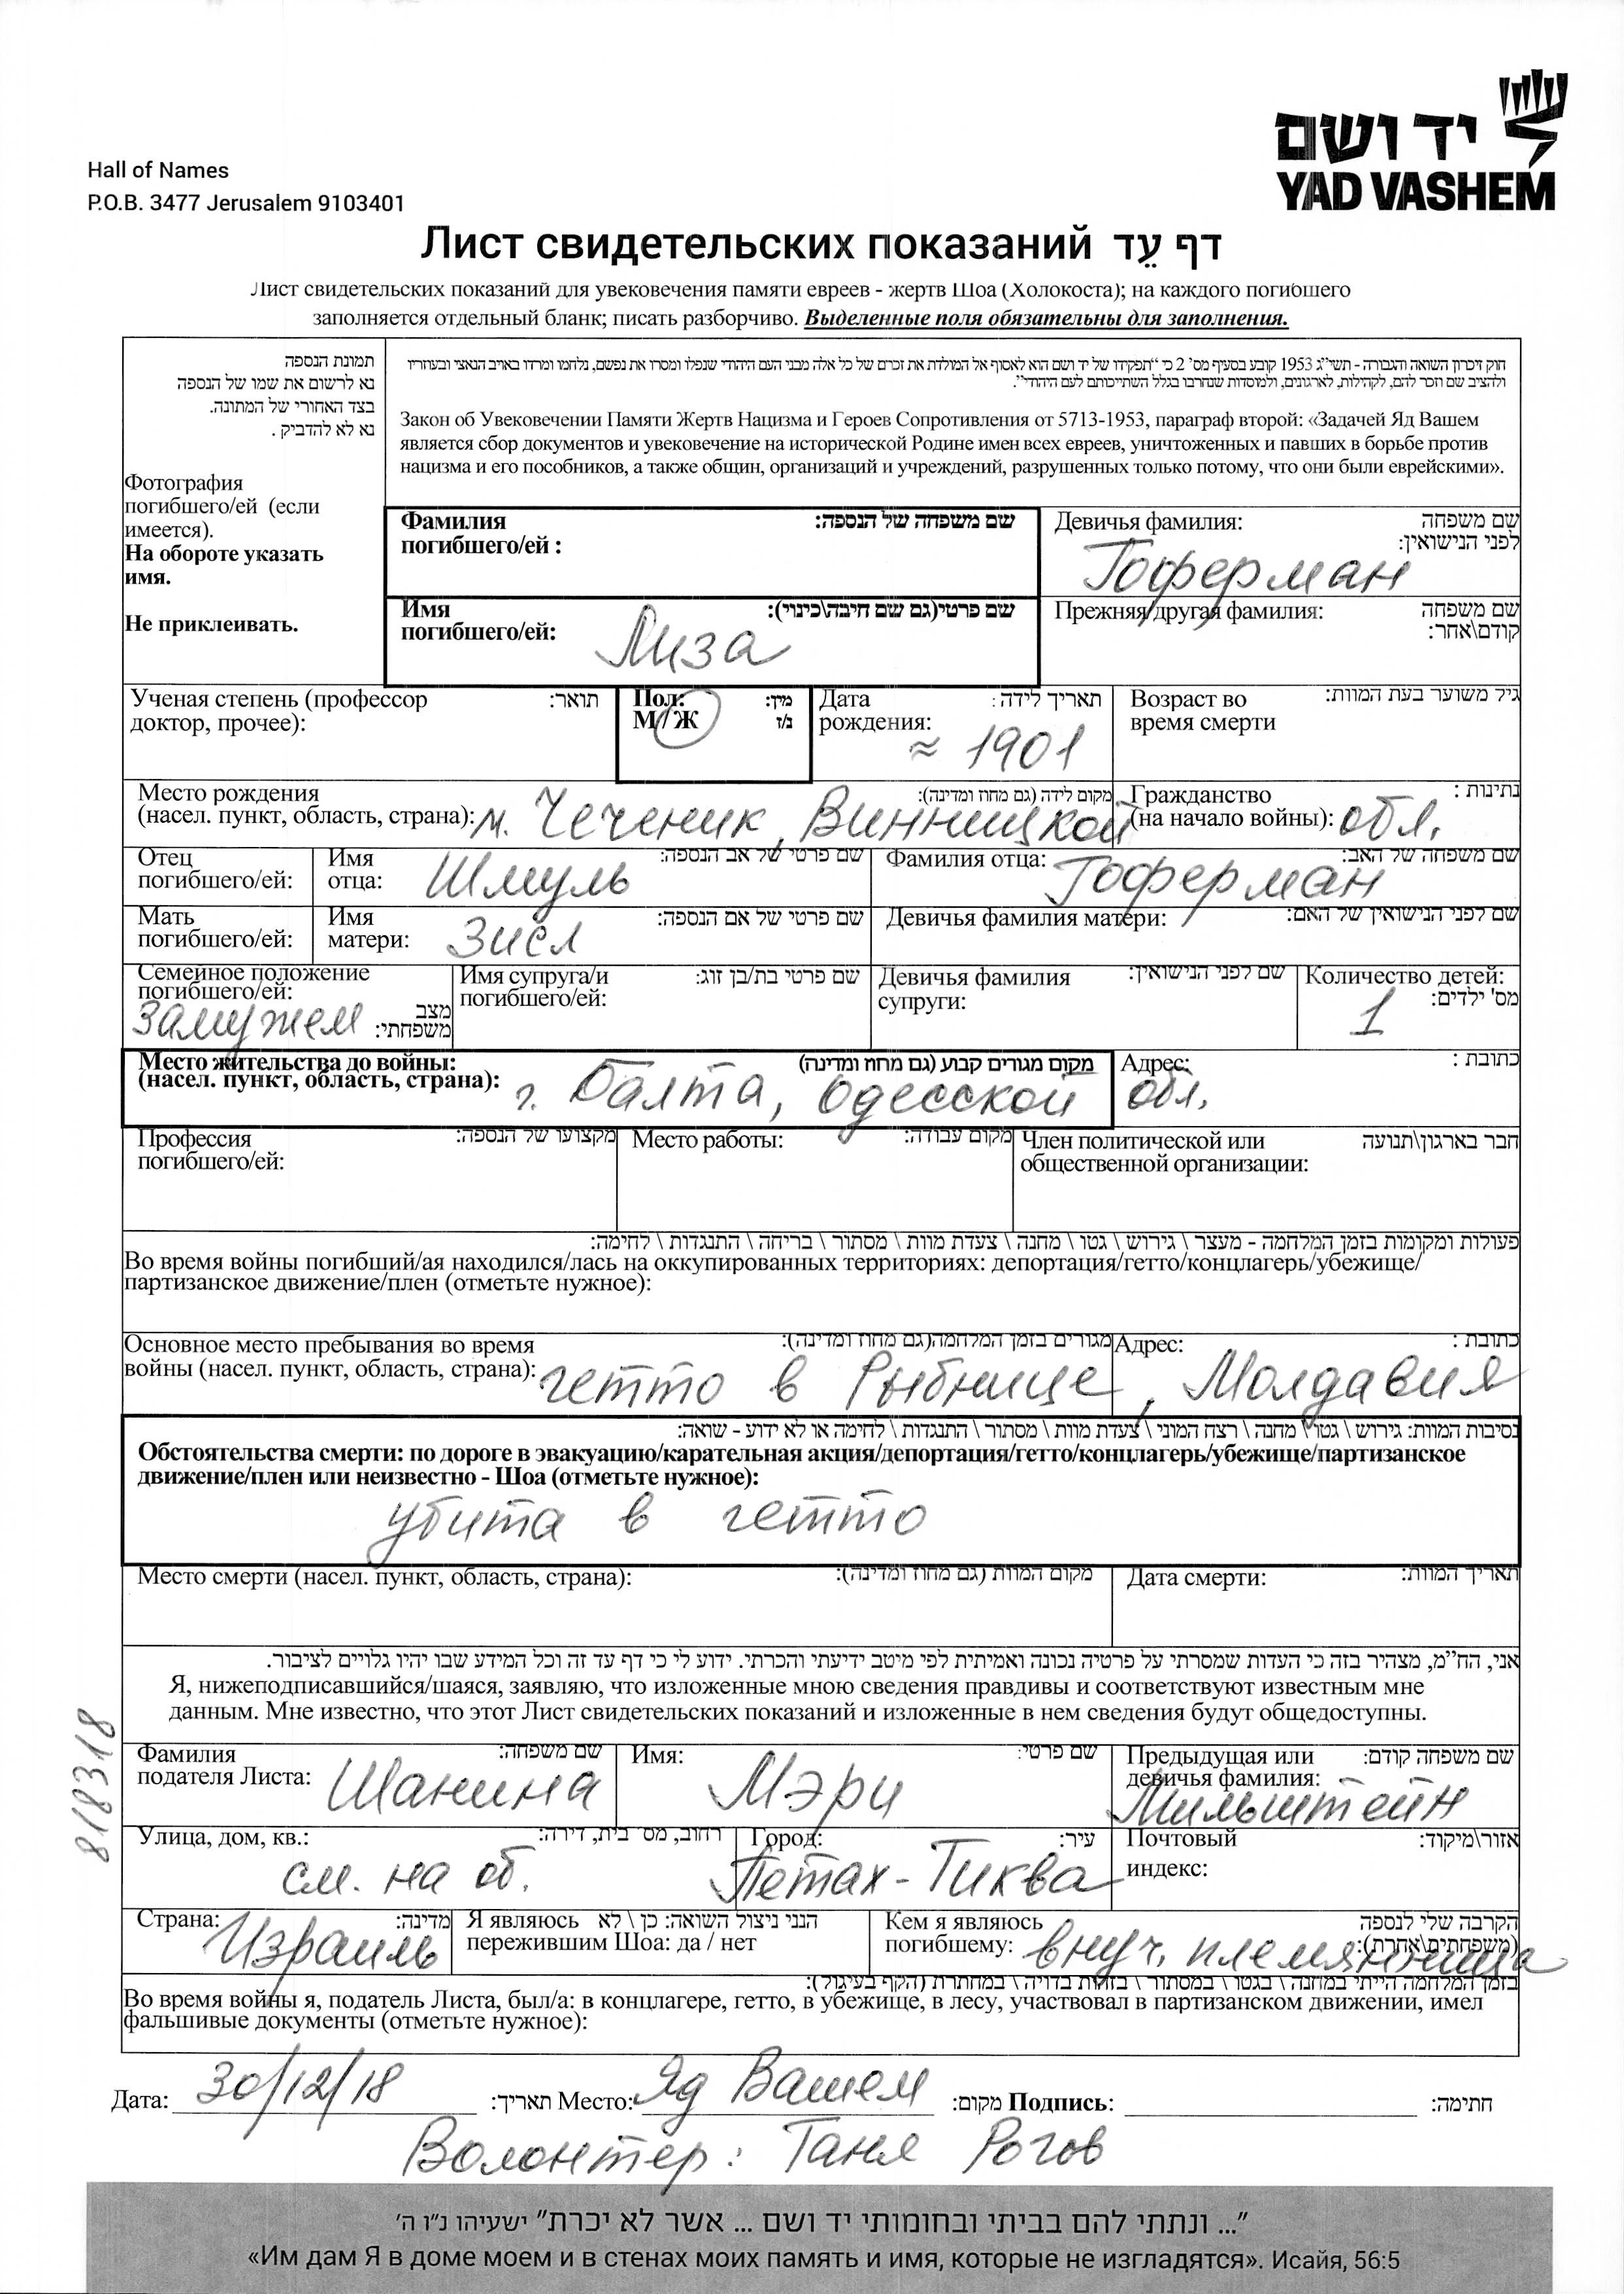 יד ושם
YAD VASHEM
Hall of Names
P.O.B. 3477 Jerusalem 9103401
Лист свидетельских показаний דף עֵד
Лист свидетельских показаний для увековечения памяти евреев - жертв Шоа (Холокоста); на каждого погибшего
заполняется отдельный бланк; писать разборчиво. Выделенные поля обязательны для заполнения.
תמונת הנספה
נא לרשום את שמו של הנספה
בצד האחורי של המתונה.
נא לא להדביק .
Фотография
погибшего/ей (если
имеется).
На обороте указать
имя.
Не приклеивать.
חוק זיכרון השואה והגבורה - תשי"ג 1953 קובע בסעיף מס' 2 כי "תפקידו של יד ושם הוא לאסוף אל המולדת את זכרם של כל אלה מבני העם היהודי שנפלו ומסרו את נפשם, נלחמו ומרדו באויב הנאצי ובעוזריו
ולהציב שם וזכר להם, לקהילות, לארגונים, ולמוסדות שנחרבו בגלל השתייכותם לעם היהודי".
Закон об Увековечении Памяти Жертв Нацизма и Героев Сопротивления от 5713-1953, параграф второй: «Задачей Яд Вашем
является сбор документов и увековечение на исторической Родине имен всех евреев, уничтоженных и павших в борьбе против
нацизма и его пособников, а также общин, организаций и учреждений, разрушенных только потому, что они были еврейскими».
Фамилия שם משפחה של הנספה:
погибшего/ей :
Девичья фамилия: שם משפחה
לפני הנישואין:
Гоферман
Имя שם פרטי(גם שם חיבה\כינוי):
погибшего/ей: Лиза
Прежняя/другая фамилия: שם משפחה
קודם\אחר:
Ученая степень (профессор תואר:
доктор, прочее):
Пол: מין:
М/Ж נ/ז
Дата תאריך לידה :
рождения: ≈ 1901
Возраст во גיל משוער בעת המוות:
время смерти
Место рождения מקום לידה (גם מחוז ומדינה):
(насел. пункт, область, страна): м. Чеченик, Винницкой
Гражданство נתינות :
(на начало войны): обл.
Отец
погибшего/ей:
Имя שם פרטי של אב הנספה:
отца: Шмуль
Фамилия отца: שם משפחה של האב:
Гоферман
Мать
погибшего/ей:
Имя שם פרטי של אם הנספה:
матери: Зисл
Девичья фамилия матери: שם לפני הנישואין של האם:
Семейное положение
погибшего/ей: מצב
замужем משפחתי:
Имя супруга/и שם פרטי בת/בן זוג:
погибшего/ей:
Девичья фамилия שם לפני הנישואין:
супруги:
Количество детей:
מס' ילדים:
1
Место жительства до войны: מקום מגורים קבוע (גם מחוז ומדינה)
(насел. пункт, область, страна): г. Балта, Одесской
Адрес: כתובת :
обл.
Профессия מקצועו של הנספה:
погибшего/ей:
Место работы: מקום עבודה:
Член политической или חבר בארגון\תנועה
общественной организации:
פעולות ומקומות בזמן המלחמה - מעצר \ גירוש \ גטו \ מחנה \ צעדת מוות \ מסתור \ בריחה \ התנגדות \ לחימה:
Во время войны погибший/ая находился/лась на оккупированных территориях: депортация/гетто/концлагерь/убежище/
партизанское движение/плен (отметьте нужное):
Основное место пребывания во время מגורים בזמן המלחמה(גם מחוז ומדינה):
войны (насел. пункт, область, страна): гетто в Рыбнице,
Адрес: כתובת :
Молдавия
נסיבות המוות: גירוש \ גטו \ מחנה \ רצח המוני \ צעדת מוות \ מסתור \ התנגדות \ לחימה או לא ידוע - שואה:
Обстоятельства смерти: по дороге в эвакуацию/карательная акция/депортация/гетто/концлагерь/убежище/партизанское
движение/плен или неизвестно - Шоа (отметьте нужное):
убита в гетто
Место смерти (насел. пункт, область, страна): מקום המוות (גם מחוז ומדינה):
Дата смерти: תאריך המוות:
אני, הח"מ, מצהיר בזה כי העדות שמסרתי על פרטיה נכונה ואמיתית לפי מיטב ידיעתי והכרתי. ידוע לי כי דף עד זה וכל המידע שבו יהיו גלויים לציבור.
Я, нижеподписавшийся/шаяся, заявляю, что изложенные мною сведения правдивы и соответствуют известным мне
данным. Мне известно, что этот Лист свидетельских показаний и изложенные в нем сведения будут общедоступны.
818318
Фамилия שם משפחה:
подателя Листа: Шанина
Имя: שם פרטי:
Мэри
Предыдущая или שם משפחה קודם:
девичья фамилия:
Мильштейн
Улица, дом, кв.: רחוב, מס' בית, דירה:
см. на об.
Город: עיר:
Петах-Тиква
Почтовый אזור\מיקוד:
индекс:
Страна: מדינה:
Израиль
Я являюсь הנני ניצול השואה: כן \ לא
пережившим Шоа: да / нет
Кем я являюсь הקרבה שלי לנספה
погибшему: (משפחתית\אחרת):
внуч. племянница
בזמן המלחמה הייתי במחנה \ בגטו \ במסתור \ בזהות בדויה \ במחתרת (הקף בעיגול):
Во время войны я, податель Листа, был/а: в концлагере, гетто, в убежище, в лесу, участвовал в партизанском движении, имел
фальшивые документы (отметьте нужное):
Дата: 30/12/18 תאריך: Место: Яд Вашем מקום: Подпись: חתימה:
Волонтер: Таня Рогов
"... ונתתי להם בביתי ובחומותי יד ושם ... אשר לא יכרת" ישעיהו נ"ו ה'
«Им дам Я в доме моем и в стенах моих память и имя, которые не изгладятся». Исайя, 56:5